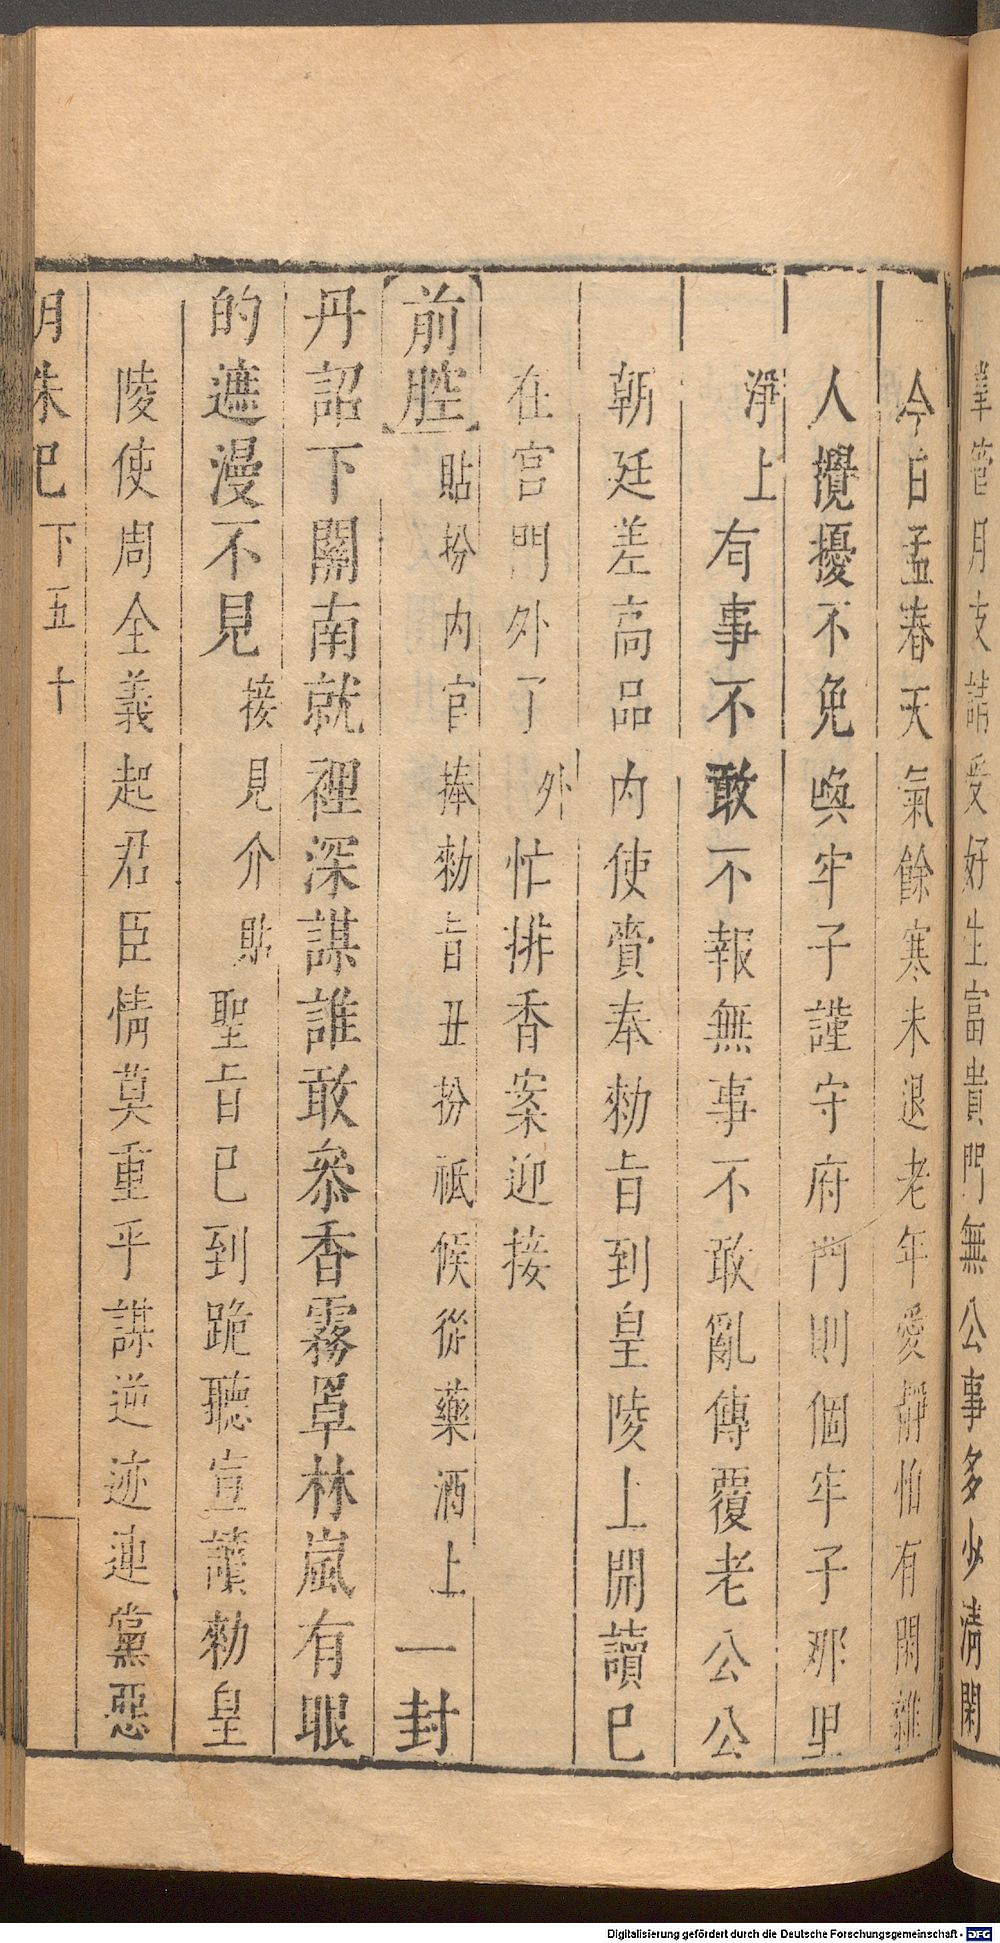 管月支請受好生富貴門無公事多少清閑
今日孟春天氣餘寒未退老年愛靜怕有閑雜
人攪擾不免喚牢子謹守府門則個牢子那里
淨上有事不敢不報無事不敢亂傳覆老公公
朝廷差高品內使賫奉勑旨到皇陵上開讀已
在宫門外了外忙排香案迎接
前腔貼扮內官捧勑旨丑扮祗候從藥酒上一封
丹詔下關南就裡深謀誰敢叅香霧罩林嵐有眼
的遮漫不見接見介貼聖旨已到跪聽宣讀勑皇
陵使周全義起君臣情莫重乎謀逆迹連黨惡
朱已 下五十
Digitalisierung gefördert durch die Deutsche Forschungsgemeinschaft - DFG